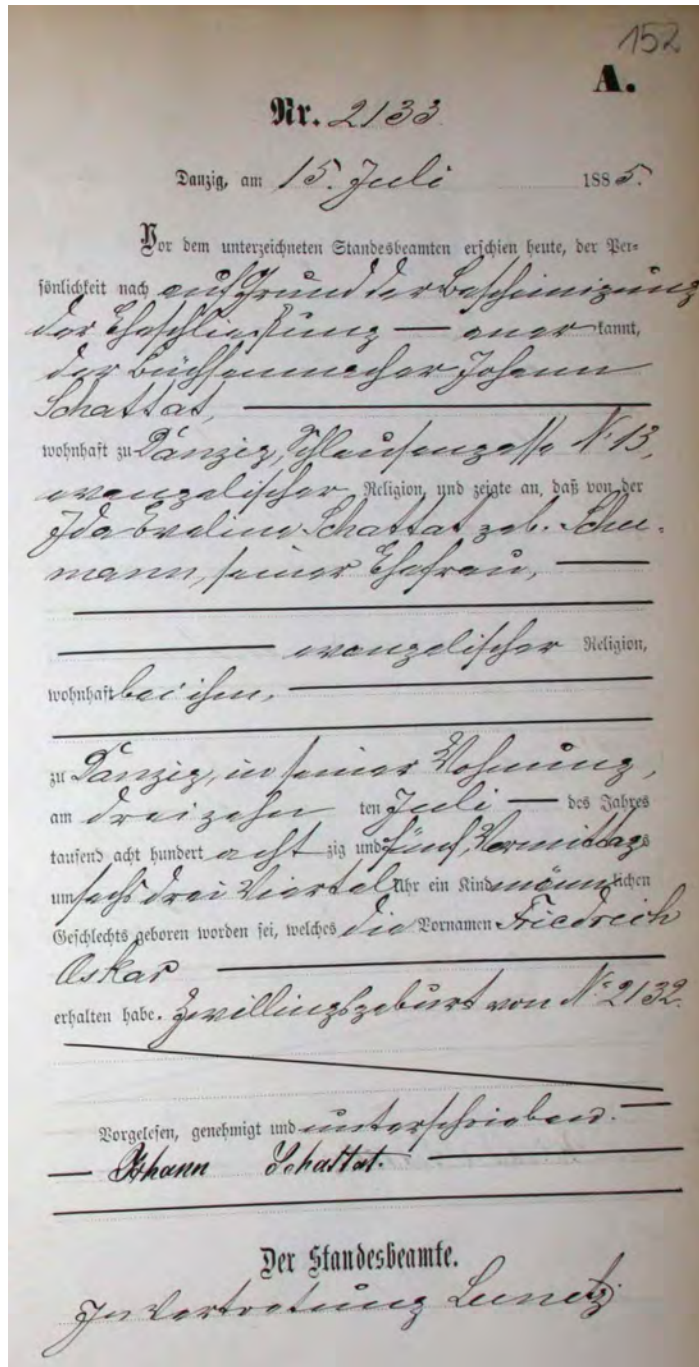 152
A.
Nr. 2133.
Danzig, am 15. Juli 1885.
Vor dem unterzeichneten Standesbeamten erschien heute, der Per=
sönlichkeit nach auf Grund der Bescheinigung
der Eheschließung — anerkannt,
der Büchsenmacher Johann
Schattat,
wohnhaft zu Danzig, Schleusengasse No 13,
evangelischer Religion, und zeigte an, daß von der
Ida Eveline Schattat geb. Schu-
mann, seiner Ehefrau,
evangelischer Religion,
wohnhaft bei ihm,
zu Danzig, in seiner Wohnung,
am dreizehn ten Juli — des Jahres
tausend acht hundert achtzig und fünf, Vormittags
um sechs drei Viertel Uhr ein Kind männlichen
Geschlechts geboren worden sei, welches die Vornamen Friedreich
Oskar
erhalten habe. Zwillingsgeburt von No 2132.
Vorgelesen, genehmigt und unterschrieben. —
— Johann Schattat. —
Der Standesbeamte.
In Vertretung